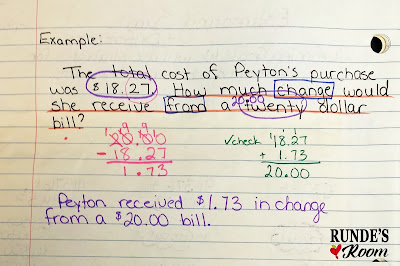 Example:
The total cost of Peyton's purchase
was $18.27. How much change would
she receive from a twenty dollar
20.00
bill?
1 9 9
20.00 10
- 18.27
1.73
✓check 1 1
18.27
+ 1.73
20.00
Peyton received $1.73 in change
from a $20.00 bill.
RUNDE'S
Room